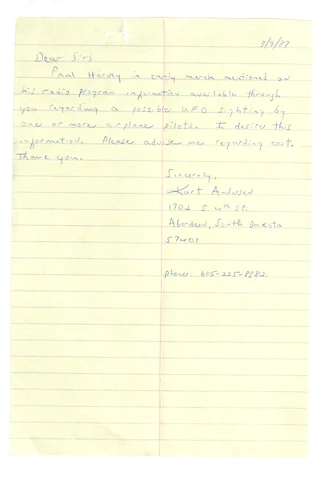 Dear Sirs
Paul Harvey in early march mentioned on
his radio program information available through
you regarding a possible UFO sighting by
one or more airplane pilots. I desire this
information. Please advise me regarding cost.
Thank you.
Sincerely,
Kurt Andersen
1702 S. 4th St.
Aberdeen, South Dakota
57401
phone: 605-225-